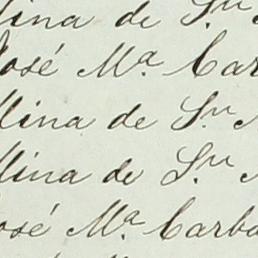 lina de S.n
José M.a Car
lina de S.n
lina de S.n
osé M.a Carba